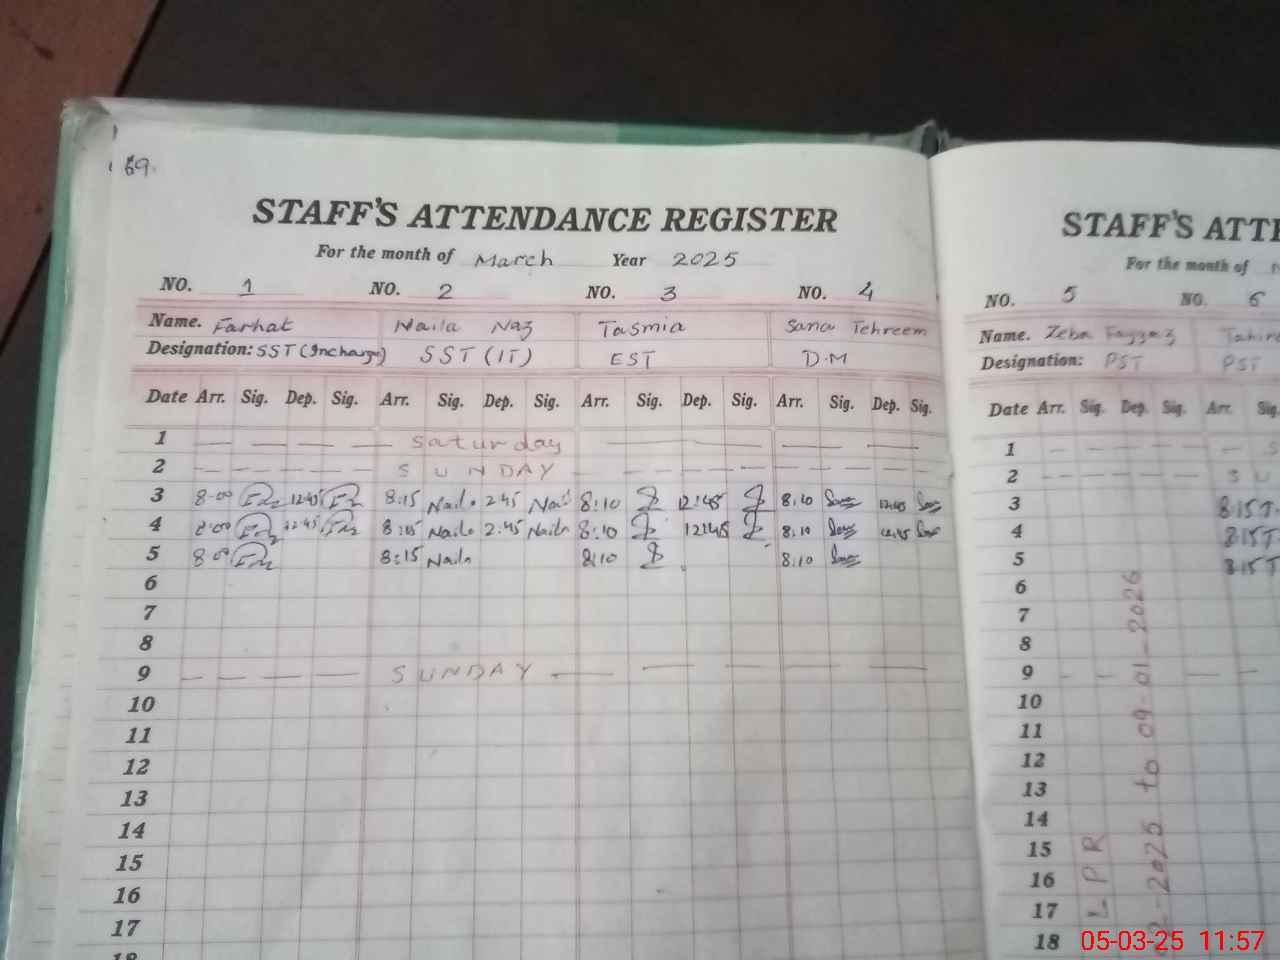 69.
STAFF'S ATTENDANCE REGISTER
For the month of March Year 2025
NO. 1 NO. 2 NO. 3 NO. 4
Name. Farhat Naila Naz Tasmia Sana Tehreem
Designation: SST (Incharge) SST (IT) EST D.M
Date Arr. Sig. Dep. Sig. Arr. Sig. Dep. Sig. Arr. Sig. Dep. Sig. Arr. Sig. Dep. Sig.
1 Saturday
2 SUNDAY
3 8:00 12:45 8:15 Naila 2:45 Naila 8:10 12:45 8:10 12:45
4 8:00 12:45 8:15 Naila 2:45 Naila 8:10 12:45 8:10 12:45
5 8:00 8:15 Naila 8:10 8:10
6
7
8
9 SUNDAY
10
11
12
13
14
15
16
17
18
STAFF'S ATTE
For the month of
NO. 5 NO. 6
Name. Zeba Fayyaz
Designation: PST PST
Date Arr. Sig. Dep. Sig. Arr. Sig.
1 S
2 SU
3 8:15 T
4 8:15 T
5 8:15 T
6
7
8
9
10
11
12
13
14
15
16
17
18
LPR
2-2025 to 09-01-2026
05-03-25 11:57